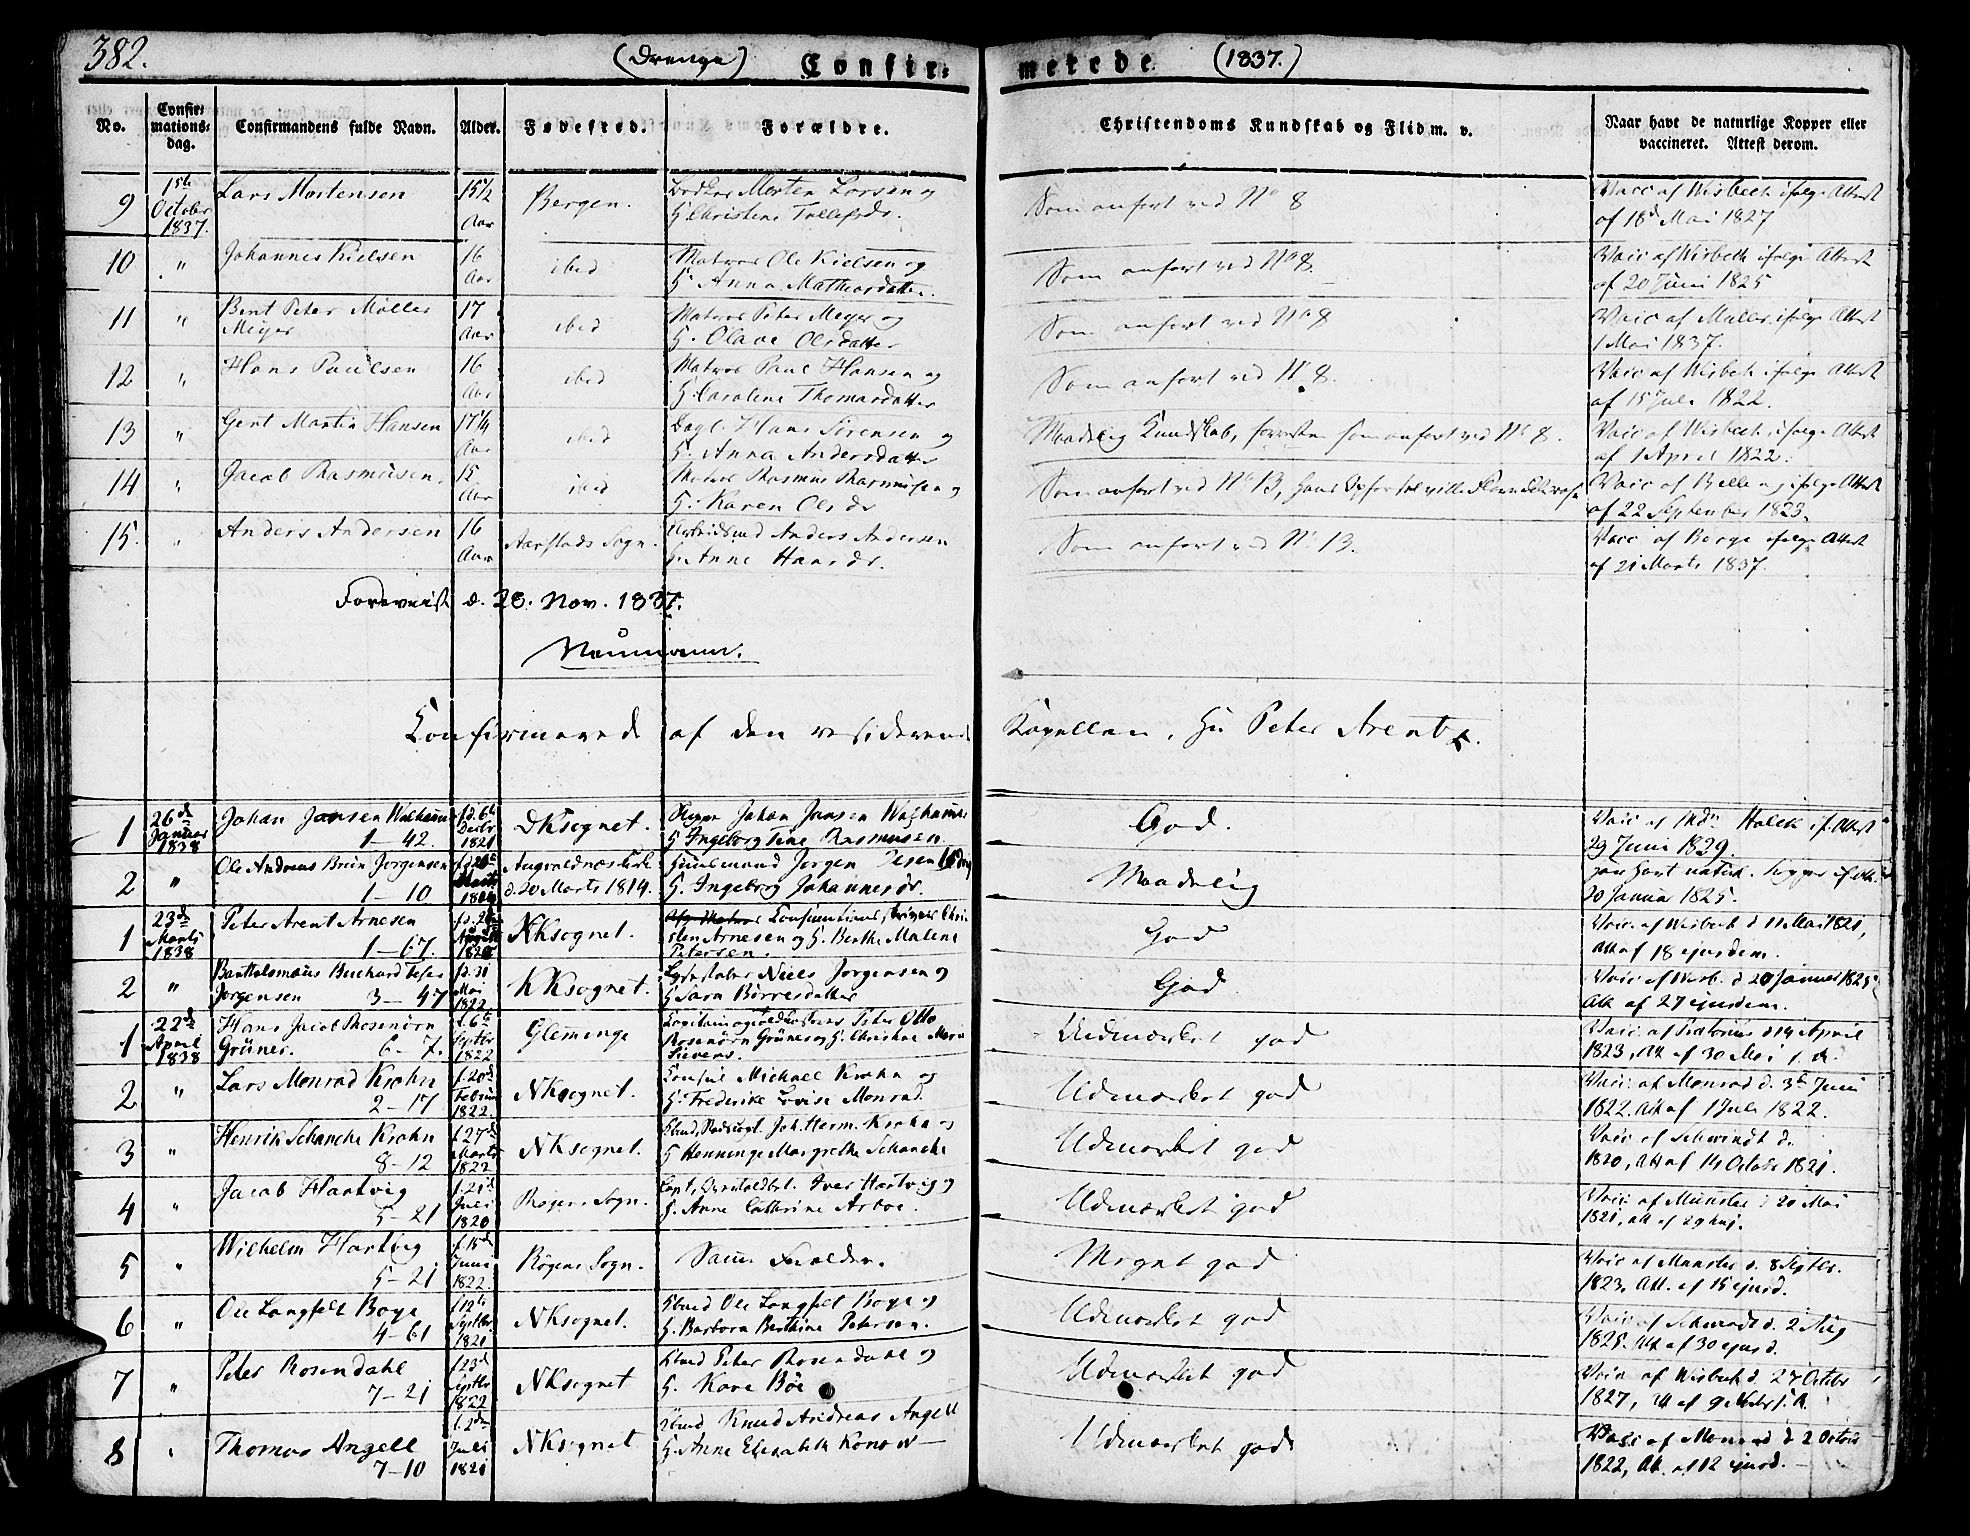 382.
(Drenge)
Confir=
merede
(1837.)
No.
Confir=
mations=
dag.
Confirmandens fulde Navn.
Alder.
Fødested.
Forældre.
Christendoms Kundskab og Flid m. v.
Naar havt de naturlige Kopper eller
vaccineret. Attest derom.
9
15de
October
1837.
Lars Mortensen
15½
Aar
Bergen.
Morten Larsen og
H. Christine Tollefsdr.
Som anført ved No 8
Vacc af Wisbech ifølge Attest
af 18d Mai 1827
10
"
Johannes Kielsen
16
Aar
ibid
Matros Ole Kielsen og
H. Anna Mathiasdatter.
Som anført ved No 8.
Vacc af Wisbech ifølge Attest
af 20 Juni 1825
11
"
Bent Peter Møller
Meyer
17
Aar
ibid
Matros Peter Meyer og
H. Olave Olsdatter
Som anført ved No 8
Vacc af Müller ifølge Attest
1 Mai 1837.
12
"
Hans Paulsen
16
Aar
ibid
Matros Paul Hansen og
H. Caroline Thomasdatter
Som anført ved No 8.
Vacc af Wisbech ifølge Attest
af 15 Juli 1822.
13
"
Gert Martin Hansen
17¼
Aar
ibid
Dagl. Hans Sørensen og
H. Anna Andersdatter
Maadelig Kundskab, forresten som anført ved No 8.
Vacc af Wisbech, ifølge Attest
af 1 April 1822.
14
"
Jacob Rasmusen.
15
Aar
ibid
Matros Rasmus Rasmusen og
H. Karen Olsdr
Som anført ved No 13,
Vacc af ifølge Attest
af 22 September 1823.
15.
"
Anders Andersen
16
Aar
Aarstads Sogn.
Arbeidsmd Anders Andersen
H. Anne Haardr.
Som anført ved No 13.
Vacc af Berge ifølge Attest
af 21 Marts 1837.
Foreviist d. 28. Nov. 1837.
Neumann.
Confirmerede af den residerende Kapellan, Hr Peter Arentz.
1
26de
Januar
1838
Johan Jansen Walhammer
1-42.
f. d. 6te
Decbr
1821
DKsognet.
Johan Jansen Walhammer
H. Ingeborg Tine Rasmusen.
God.
Vacc af Holck if. Attest
29 Juni 1829.
2
"
Ole Andreas Brun Jørgensen
1-10
Augvaldnæs
d. 20 Marts 1814.
Huusmand Jørgen
H. Ingeborg Johannesdr.
Maadelig
20 Januar 1825.
1
23de
Marts
1838
Peter Arent Arnesen
1-67.
NKsognet.
Arnesen og H. Berthe Malene
Petersen.
God
Vacc af Wisbech d 11 Mai 1821,
Att af 18 ejusdem.
2
"
Bartholomæus Buchard
Jørgensen 3-47
f. d. 31
Mai
1822
KKsognet.
Niels Jørgensen og
H. Sara Børresdatter
God
Vacc af Wisb. d 20 Januar 1825
Att af 27 ejusdem.
1
22de
April
1838
Hans Jacob Rosenørn
Grüner. 6-7.
f. 6te
Septbr
1822
Glemminge
Peter Otto
Rosenørn Grüner og H. Christine Marie
Sievers.
Udmærket god
Vacc af d 14 April
1823, Att af 30 Mai
2
"
Lars Monrad Krohn
2-17
f. 20de
Februar
1822.
NKsognet.
Consul Michael Krohn og
H. Frederike Lovise Monrad.
Udmærket god
Vacc af Monrad d. 3de Juni
1822. Att af 1 Juli 1822.
3
"
Henrik Schancke Krohn
8-12
f. 27de
Marts
1822
NKsognet.
Joh. Herm. Krohn og
H Henninge Margrethe Schancke
Udmærket god
Vacc af Schwindt d.
1820, Att af 14 October 1821.
4
"
Jacob Hartvig
5-21
f. 21d
Juli
1820
Røgens Sogn.
Iver Hartvig og
H. Anne Cathrine Arboe.
Udmærket god
Vacc af Münster d 20 Mai
1821, Att af 29 huj.
5
"
Wilhelm Hartvig
5-21
f. 15de
Juni
1822.
Røgens Sogn.
Samme Forældre.
Meget god
Vacc af Münster d. 8 Septbr.
1823, Att. af 15 ejusd.
6
"
Ole Langfeldt Boye
4-61
f 12te
Septbr
1821
NKsognet.
Ole Langfeldt Boye og
H. Barbara Berthine Petersen.
Udmærket god
Vacc af Schwindt d. 2 Aug
1825. Att af 30 ejusd.
7
"
Peter Rosendahl
7-21
f. 23d
Septbr
1822
NKsognet
Peter Rosendahl og
H. Kare Bøe
Udmærket god
Vacc af Wisbech d. 27 Octbr
1827, Att af 9 Novbr s. A.
8
"
Thomas Angell
7-10
f. 2den
Juli
1821
NKsognet
Knud Andreas Angell
H. Anne Elisabeth Konow
Udmærket god
Vacc af Monrad d 2 Octobr
1822, Att. af 12 ejusd.